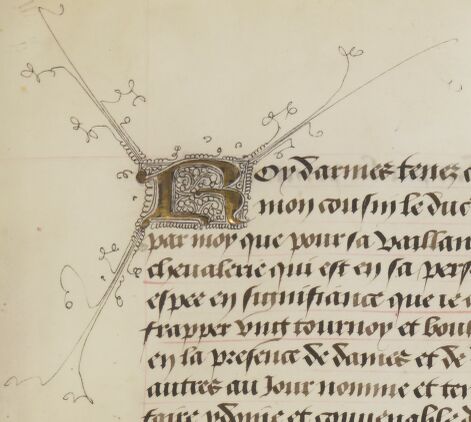 Roy darmes tenez c
mon cousin le duc
par moy que pour sa vaillan
cheualerie qui est en sa pers
espee en signifiance que ie
frapper vng tournoy et bou
en la presence de dames et de
autres au Jour nomme et tem
faire ydoine et conuenable d